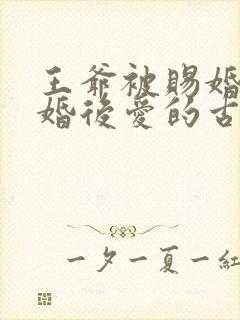 王爺被賜婚
婚後愛的古
一夕一夏一紅